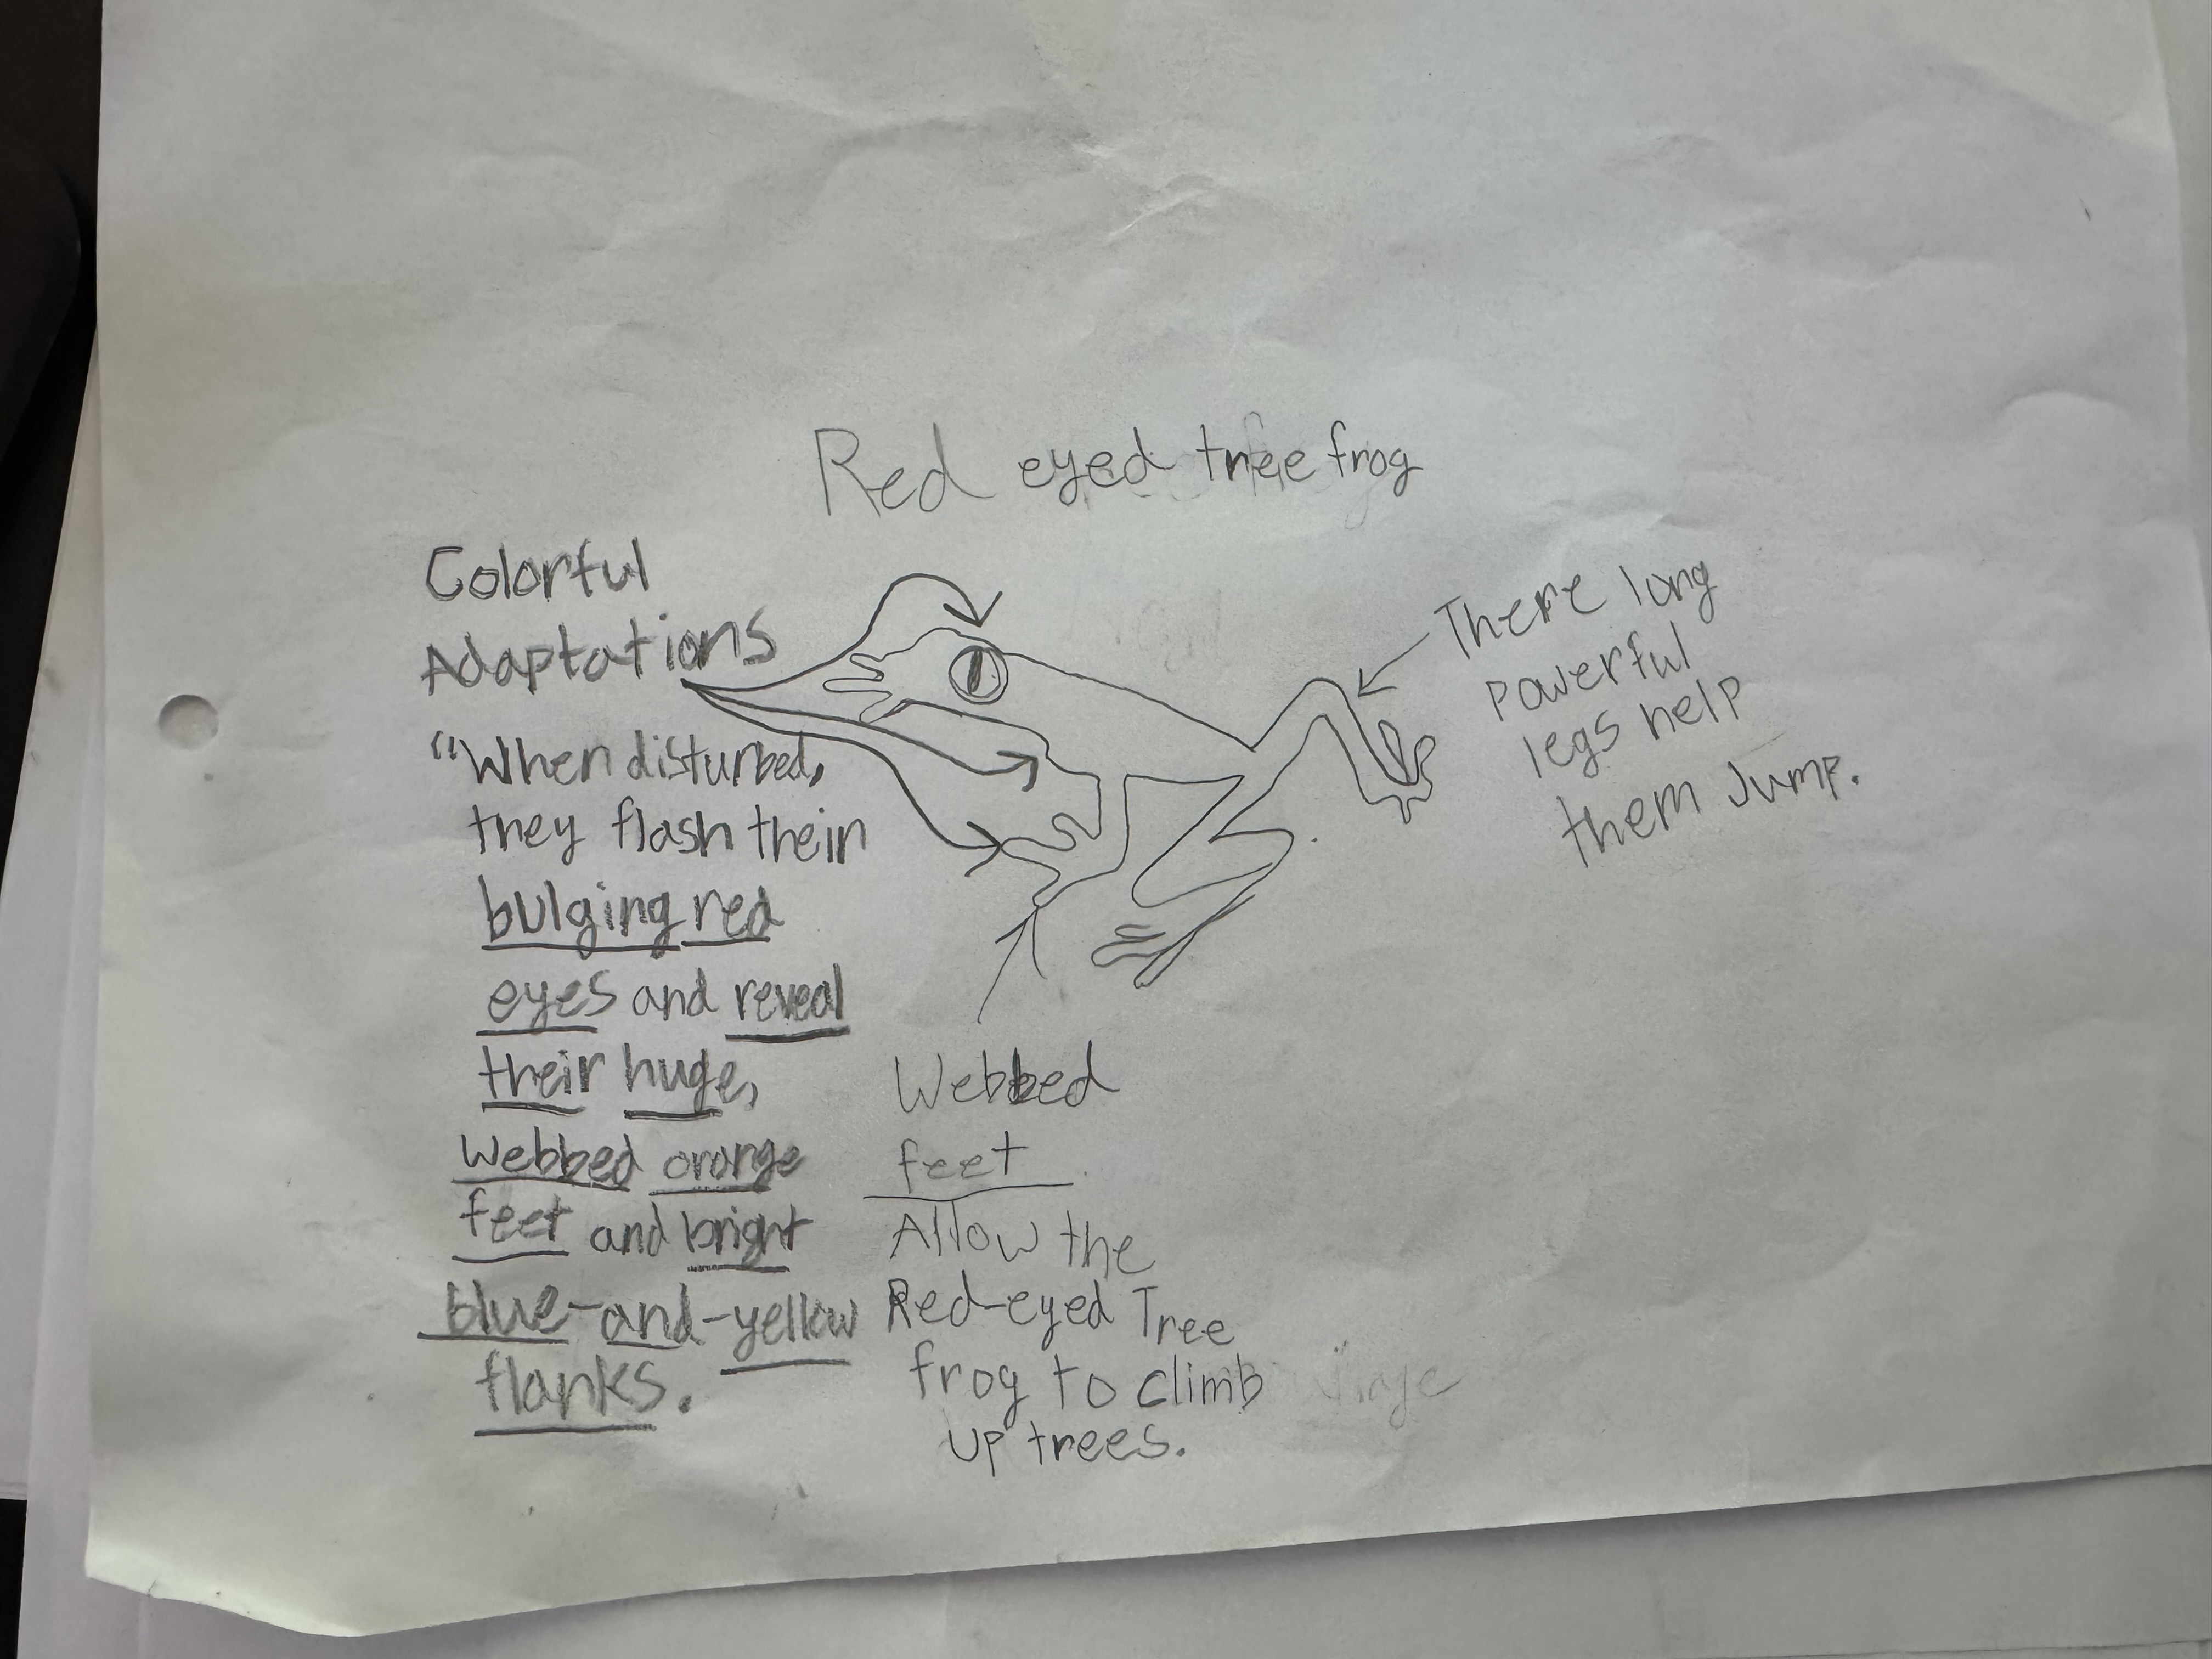 Red eyed tree frog
Colorful
Adaptations
"When disturbed,
they flash their
bulging red
eyes and reveal
their huge,
webbed orange
feet and bright
blue-and-yellow
flanks.
There long
powerful
legs help
them Jump.
Webbed
feet
Allow the
Red-eyed Tree
frog to climb
up trees.